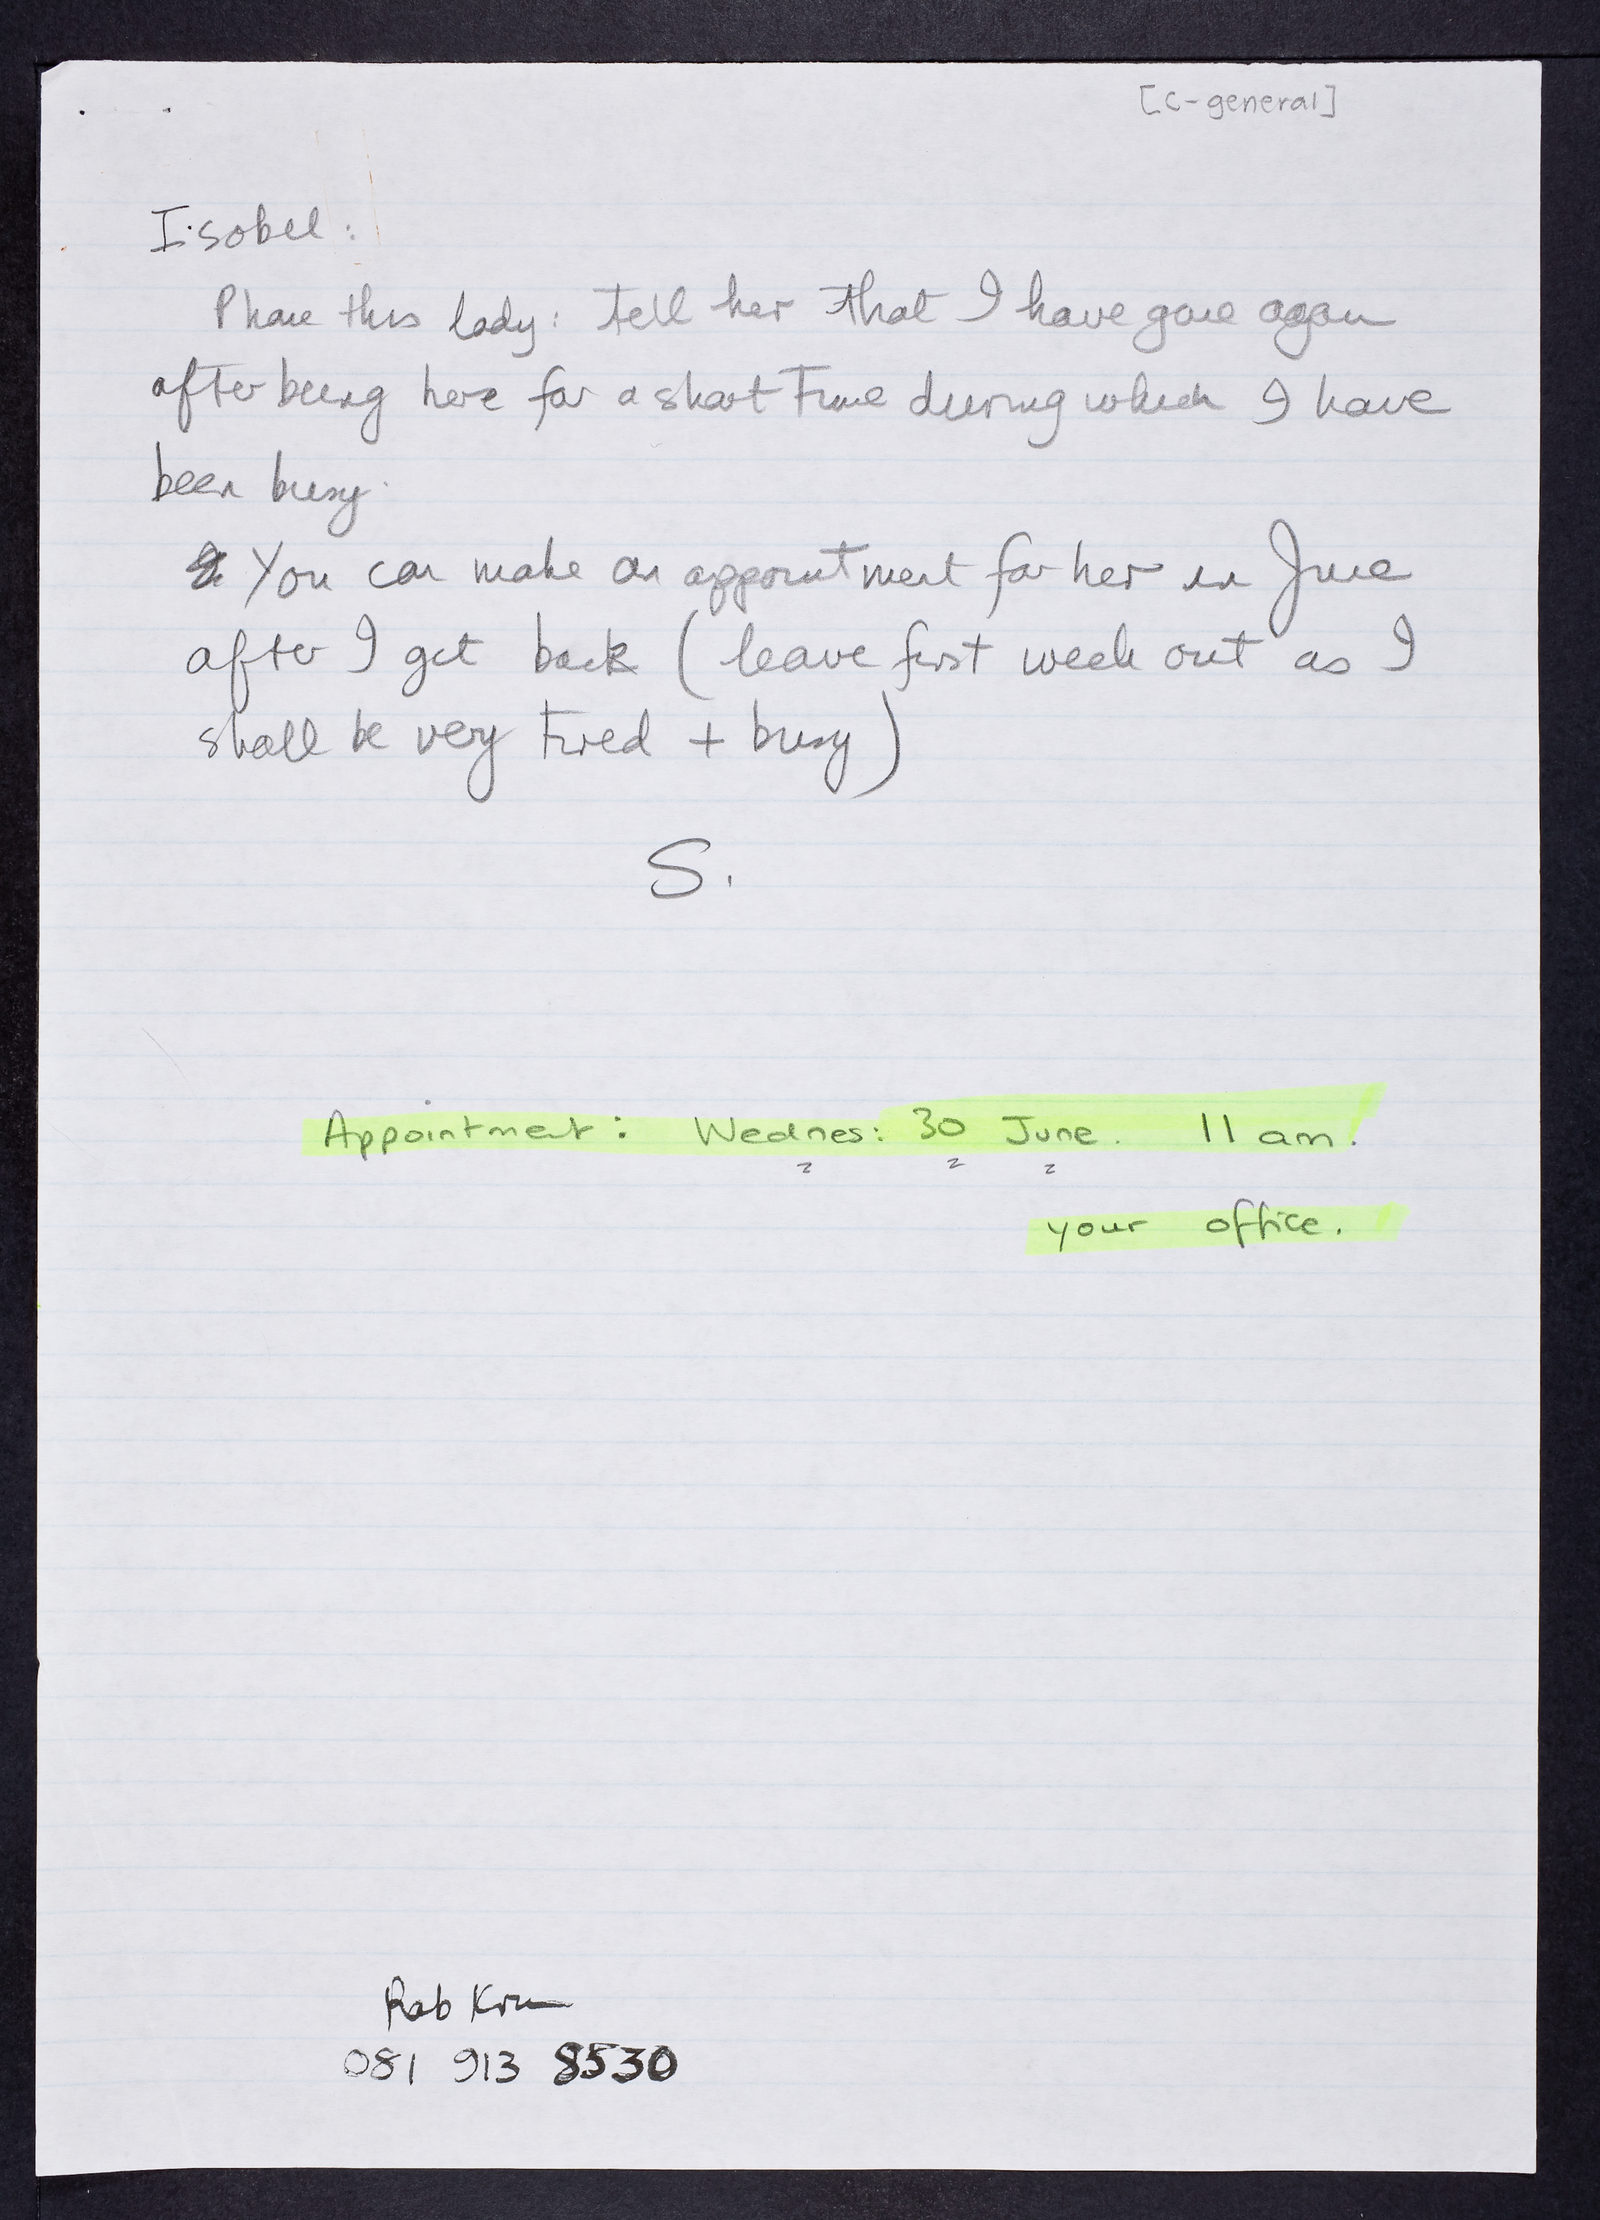 [C-general]
Isobel:
Phone this lady: tell her that I have gone again
after being here for a short time during which I have
been busy.
You can make an appointment for her in June
after I get back (leave first week out as I
shall be very tired + busy)
S.
Appointment: Wednes: 30 June. 11 am.
your office.
Rob
081 913 8530